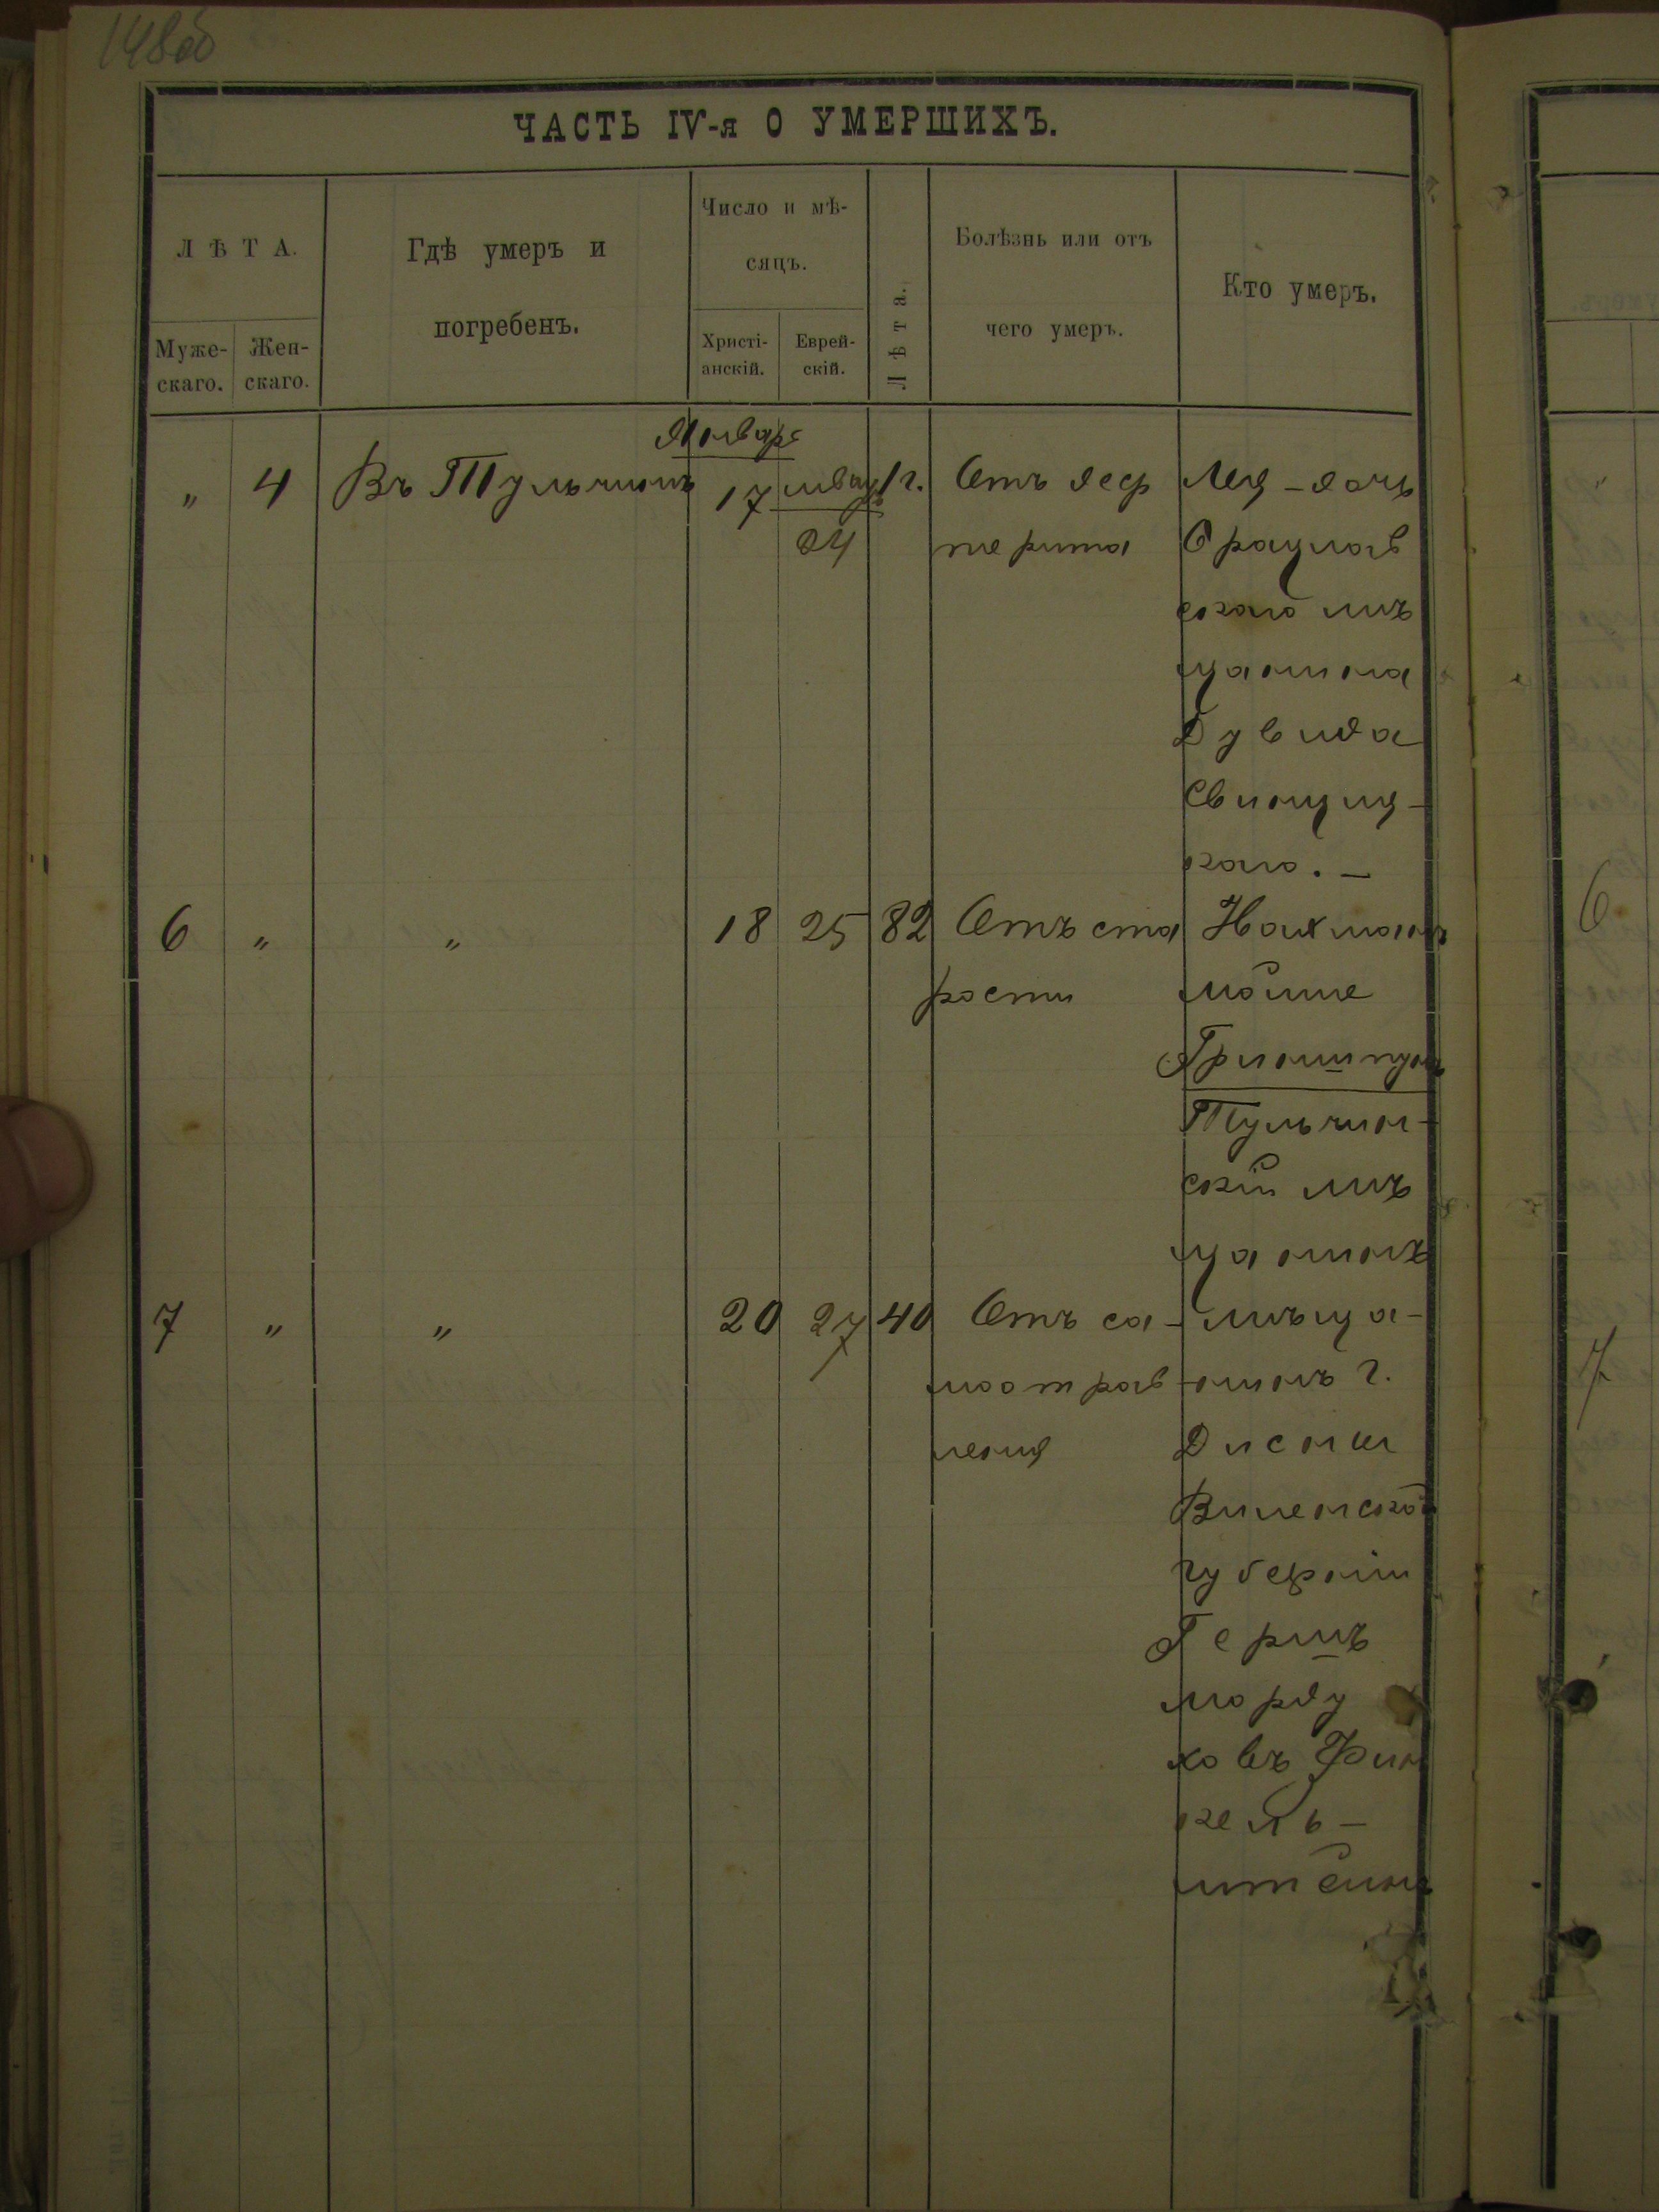 148об
ЧАСТЬ IV-я О УМЕРШИХЪ.
ЛѢТА.
Муже-
скаго.
Жен-
скаго.
Гдѣ умеръ и
погребенъ.
Число и мѣ-
сяцъ.
Христі-
анскій.
Еврей-
скій.
Лѣта.
Болѣзнь или отъ
чего умеръ.
Кто умеръ.
Январь
" 4 Въ Тульчинѣ 17 24 1 г. Отъ
Лея - дочь
скаго мѣ
щанина
Дувида
скаго. -
6 " " 18 25 82 Отъ ста
рости
Нахманъ
мойше
Тульчин-
скій мѣ
щанинъ
7 " " 20 27 40 Отъ са-
моотрав
ленія
мѣща-
нинъ г.
Дисны
Виленской
губерніи
Гершъ
морду
ховъ Фин
кель-
штейнъ
6
7